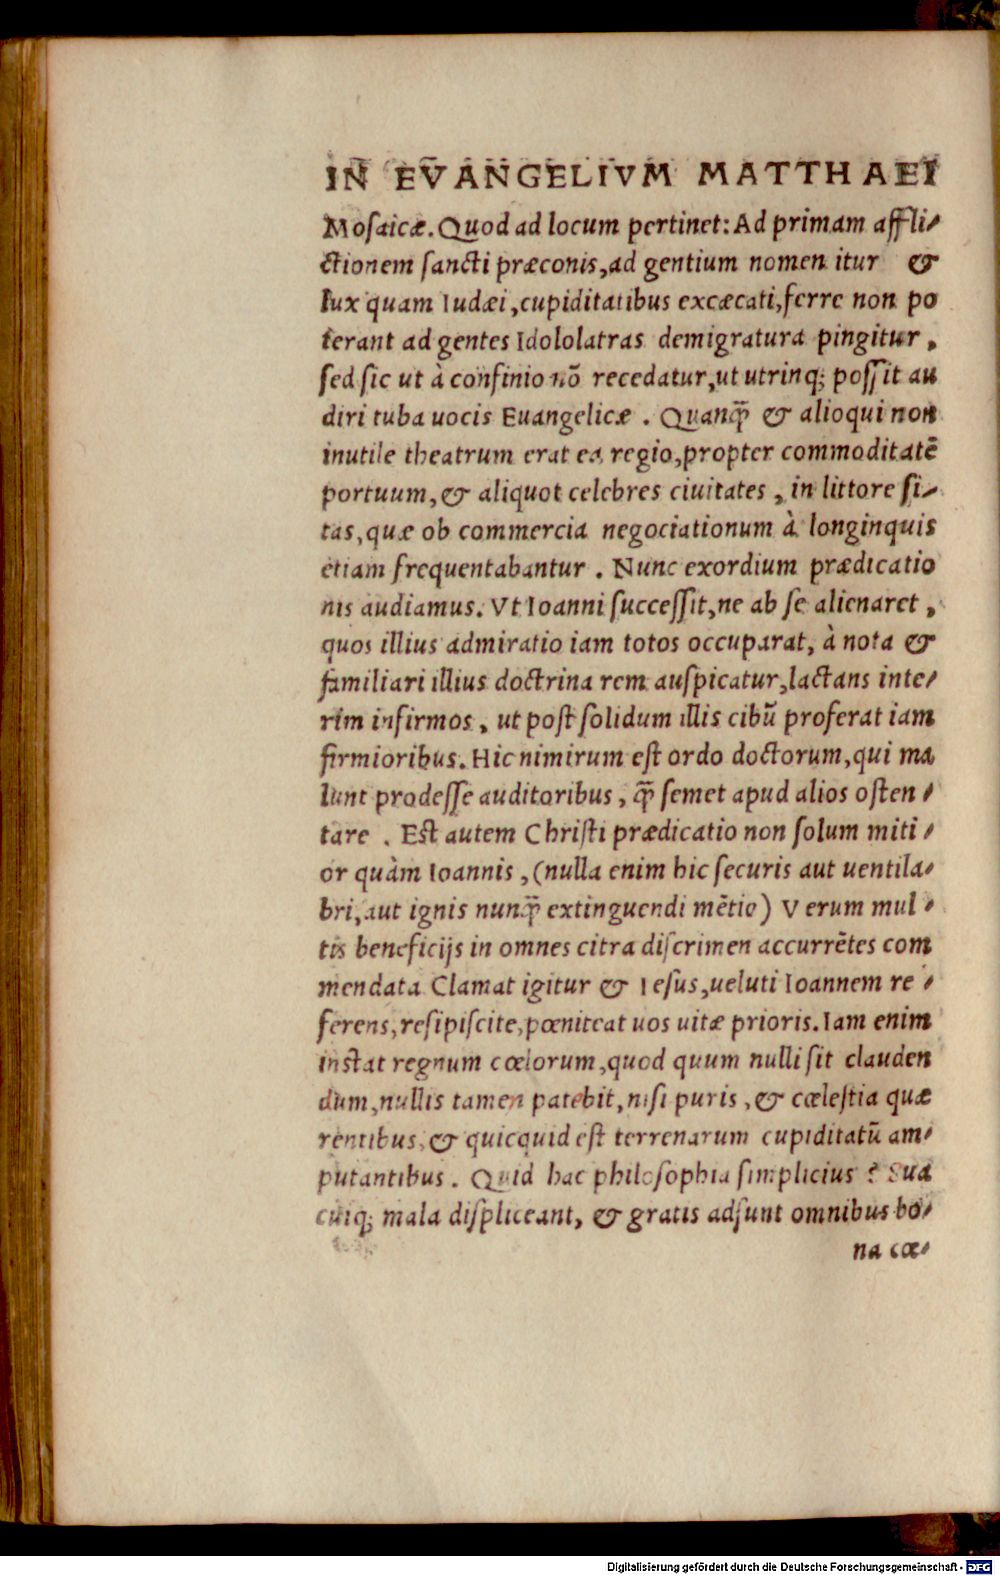 IN EVANGELIVM MATTHAEI
Mosaicæ. Quod ad locum pertinet: Ad primam affli⸗
ctionem sancti præconis, ad gentium nomen itur &
lux quam Iudæi, cupiditatibus excæcati, ferre non po
terant ad gentes Idololatras demigratura pingitur,
sed sic ut à confinio nõ recedatur, ut utrinq; possit au
diri tuba uocis Euangelicæ. Quanq̃ & alioqui non
inutile theatrum erat ea regio, propter commoditatẽ
portuum, & aliquot celebres ciuitates, in littore si⸗
tas, quæ ob commercia negociationum à longinquis
etiam frequentabantur. Nunc exordium prædicatio
nis audiamus. Vt Ioanni successit, ne ab se alienaret,
quos illius admiratio iam totos occuparat, à nota &
familiari illius doctrina rem auspicatur, lactans inte⸗
rim infirmos, ut post solidum illis cibũ proferat iam
firmioribus. Hic nimirum est ordo doctorum, qui ma
lunt prodesse auditoribus, q̃ semet apud alios osten⸗
tare. Est autem Christi prædicatio non solum miti⸗
or quàm Ioannis, (nulla enim hic securis aut uentila⸗
bri, aut ignis nunq̃ extinguendi mẽtio) Verum mul⸗
tis beneficijs in omnes citra discrimen accurrẽtes com
mendata Clamat igitur & Iesus, ueluti Ioannem re⸗
ferens, resipiscite, pœniteat uos uitæ prioris. Iam enim
instat regnum cœlorum, quod quum nulli sit clauden
dum, nullis tamen patebit, nisi puris, & cœlestia quæ
rentibus, & quicquid est terrenarum cupiditatũ am⸗
putantibus. Quid hac philosophia simplicius? Sua
cuiq; mala displiceant, & gratis adsunt omnibus bo⸗
na cœ⸗
Digitalisierung gefördert durch die Deutsche Forschungsgemeinschaft - DFG